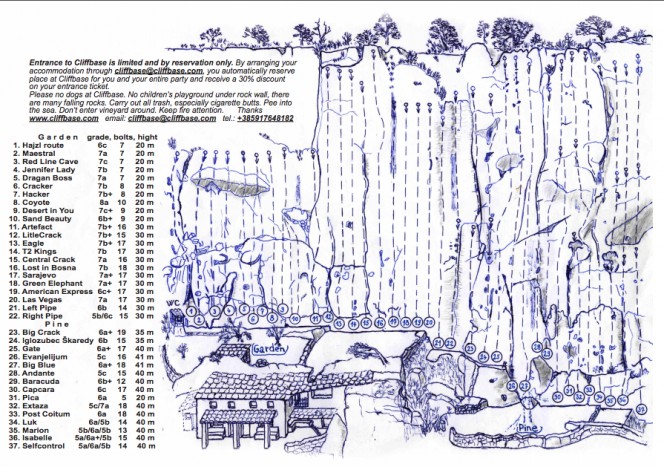 Entrance to Cliffbase is limited and by reservation only. By arranging your
accommodation through cliffbase@cliffbase.com, you automatically reserve
place at Cliffbase for you and your entire party and receive a 30% discount
on your entrance ticket.
Please no dogs at Cliffbase. No children's playground under rock wall, there
are many falling rocks. Carry out all trash, especially cigarette butts. Pee into
the sea. Don't enter vineyard around. Keep fire attention. Thanks
www.cliffbase.com email: cliffbase@cliffbase.com tel.: +385917648182
Garden grade, bolts, hight
1. Hajzl route 6c 7 20 m
2. Maestral 7a 7 20 m
3. Red Line Cave 7c 7 20 m
4. Jennifer Lady 7b 7 20 m
5. Dragan Boss 7a 7 20 m
6. Cracker 7b 8 20 m
7. Hacker 7b+ 8 20 m
8. Coyote 8a 10 20 m
9. Desert in You 7c+ 9 20 m
10. Sand Beauty 6b+ 9 20 m
11. Artefact 7b+ 16 30 m
12. LitleCrack 7b+ 15 30 m
13. Eagle 7b+ 17 30 m
14. T2 Kings 7b 17 30 m
15. Central Crack 7a 16 30 m
16. Lost in Bosna 7b 18 30 m
17. Sarajevo 7a+ 17 30 m
18. Green Elephant 7a+ 17 30 m
19. American Express 6c+ 17 30 m
20. Las Vegas 7a 17 30 m
21. Left Pipe 6b 14 30 m
22. Right Pipe 5b/6c 15 30 m
Pine
23. Big Crack 6a+ 19 35 m
24. Iglozubec Škaredy 6b 15 35 m
25. Gate 6a+ 17 40 m
26. Evanjelijum 5c 16 41 m
27. Big Blue 6a+ 18 41 m
28. Andante 5c 15 40 m
29. Baracuda 6b+ 12 40 m
30. Capcara 6c 17 40 m
31. Pica 6a 5 20 m
32. Extaza 5c/7a 18 40 m
33. Post Coitum 6a 18 40 m
34. Luk 6a/5b 14 40 m
35. Marion 5b/6a/5b 13 40 m
36. Isabelle 5a/6a+/5b 15 40 m
37. Selfcontrol 5a/5b 14 40 m
WC
1
2
3
4
5
6
7
8
9
10
11
12
13
14
15
16
17
18
19
20
21
22
23
Garden
Pine